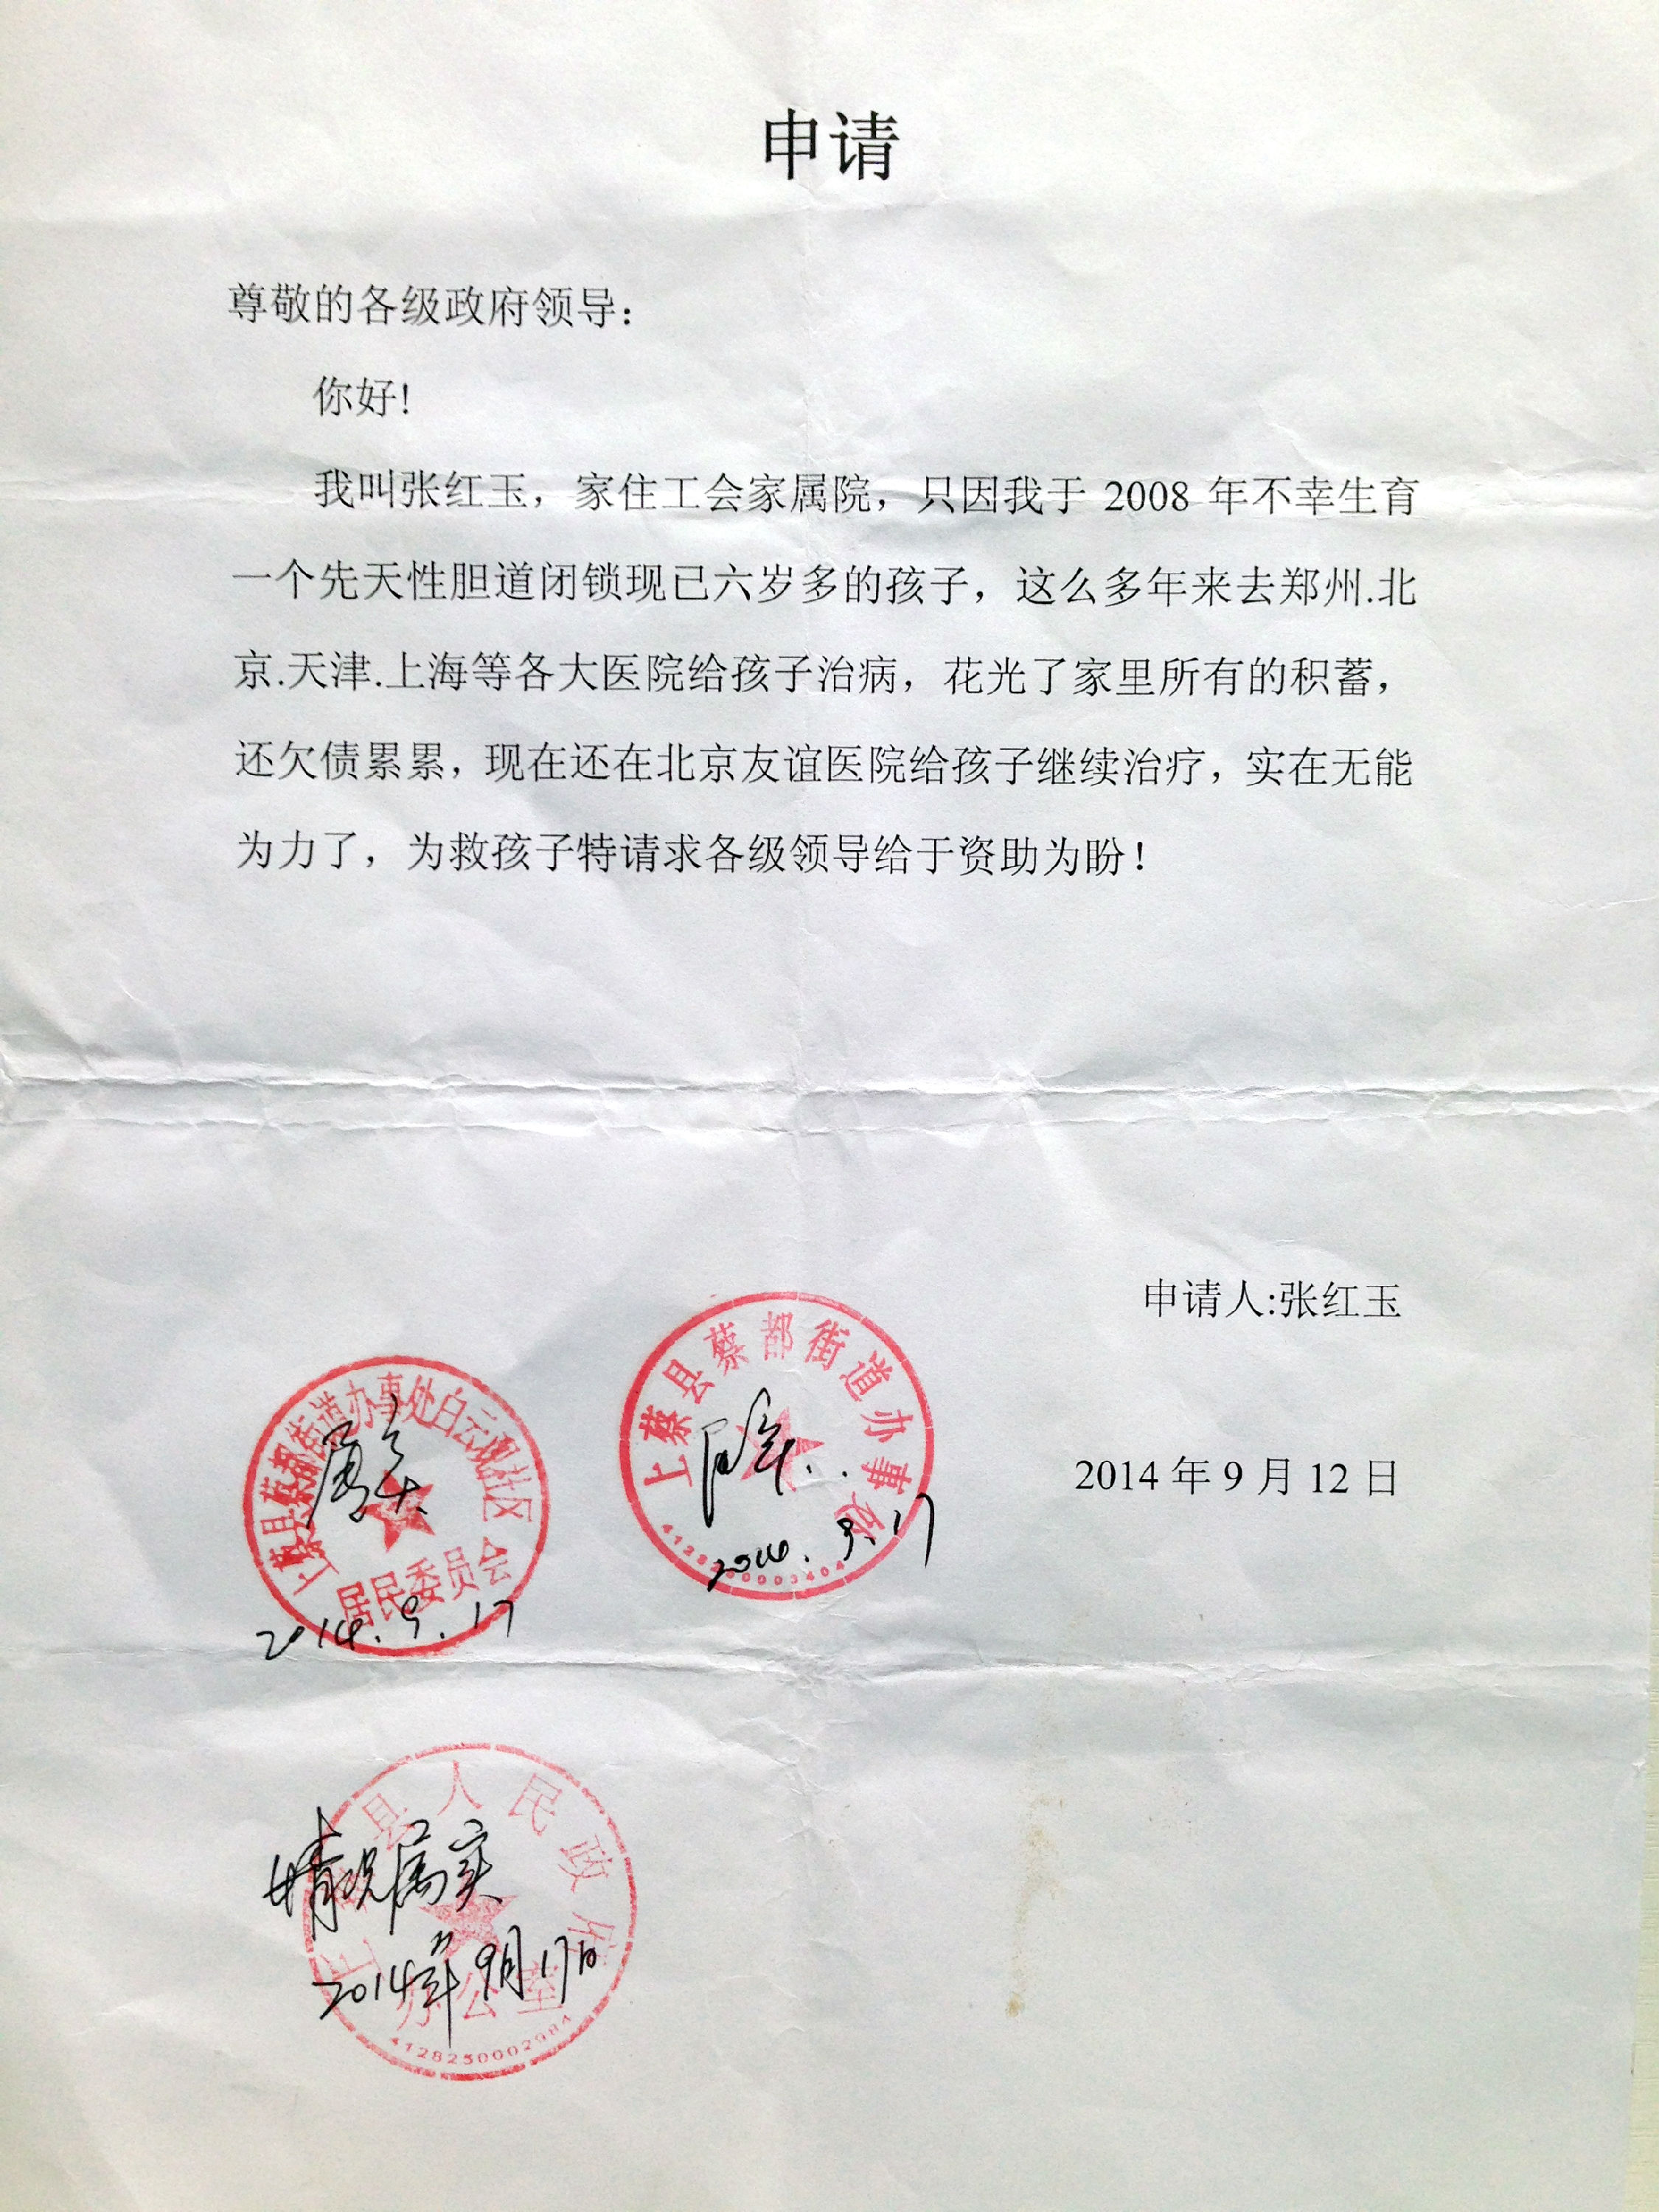 申请
尊敬的各级政府领导：
你好！
我叫张红玉，家住工会家属院，只因我于 2008 年不幸生育
一个先天性胆道闭锁现已六岁多的孩子，这么多年来去郑州.北
京.天津.上海等各大医院给孩子治病，花光了家里所有的积蓄，
还欠债累累，现在还在北京友谊医院给孩子继续治疗，实在无能
为力了，为救孩子特请求各级领导给于资助为盼！
申请人:张红玉
2014 年 9 月 12 日
上蔡县蔡都街道办事处白云观社区
居民委员会
属实
2014.9.17
上蔡县蔡都街道办事处
2014.9.17
上蔡县人民政府
办公室
4128250002984
情况属实
2014年9月17日